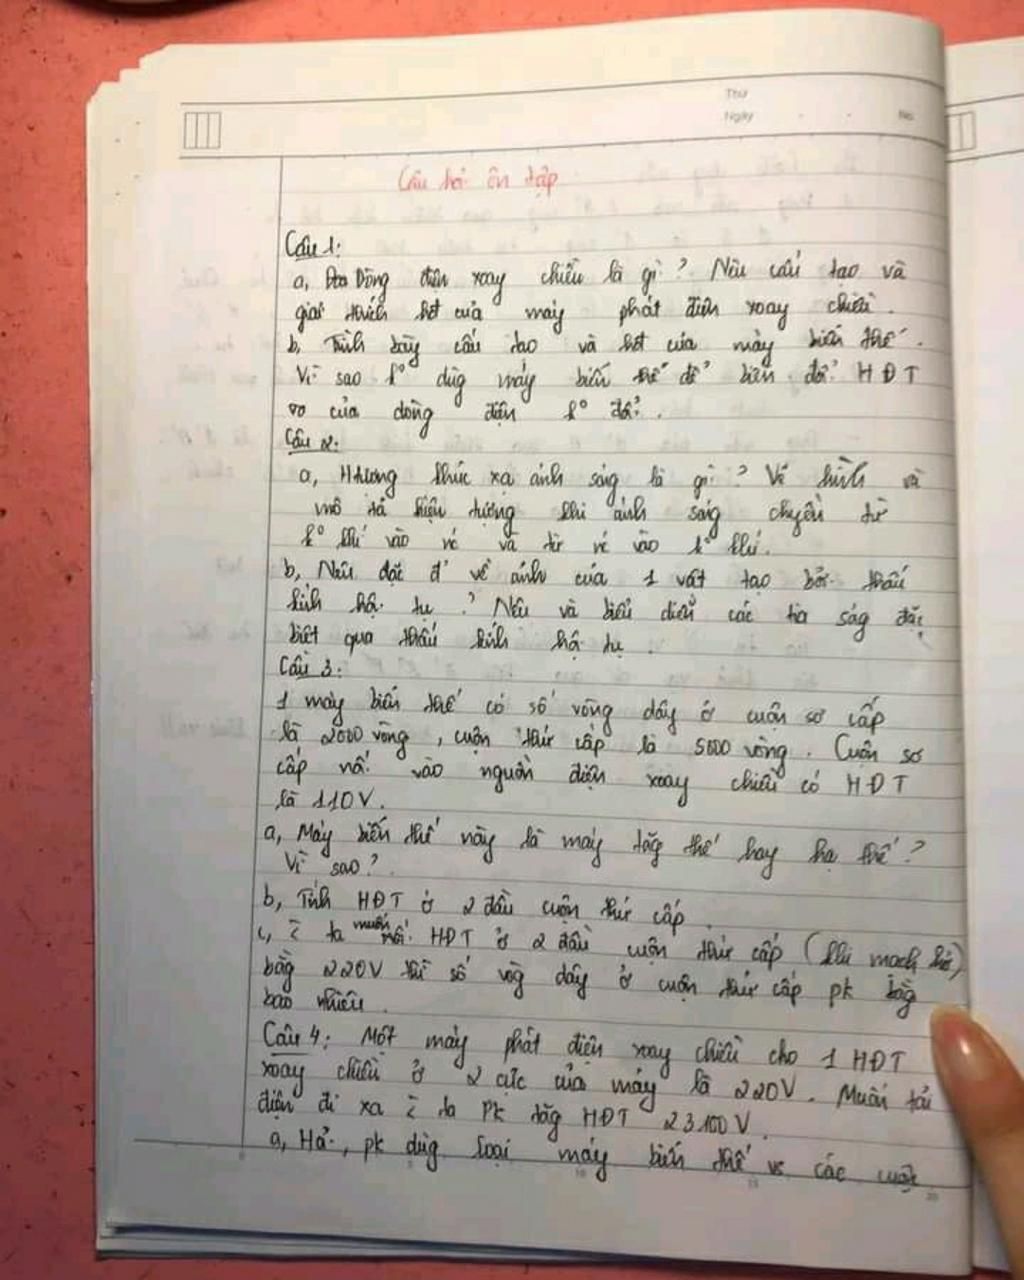 Thứ
Ngày
No
Câu hỏi ôn tập
Câu 1:
a, Dòng điện xoay chiều là gì? Nêu cấu tạo và
giải thích hđ của máy phát điện xoay chiều.
b, Trình bày cấu tạo và hđ của máy biến thế.
Vì sao k° dùg máy biến thế để biến đổi HĐT
của dòng điện k° đổi.
Câu 2:
a, Htượng khúc xạ ánh sáng là gì? Vẽ hình và
mô tả hiện tượng khi ánh sáng chuyền từ
k° khí vào nc và từ nc vào k° khí.
b, Nêu đặc đ' về ảnh của 1 vật tạo bởi thấu
kính hội tụ? Nêu và biểu diễn các tia ság đặc
biệt qua thấu kính hội tụ.
Câu 3:
1 máy biến thế có số vòng dây ở cuộn sơ cấp
là 2000 vòng, cuộn thứ cấp là 5000 vòng. Cuộn sơ
cấp nối vào nguồn điện xoay chiều có HĐT
là 110V.
a, Máy biến thế này là máy tăg thế hay hạ thế?
Vì sao?
b, Tính HĐT ở 2 đầu cuộn thứ cấp.
c, ta muốn HĐT ở 2 đầu cuộn thứ cấp (khi mạch hở)
bằg 220V thì số vòg dây ở cuộn thứ cấp pk bằg
bao nhiêu.
Câu 4: Một máy phát điện xoay chiều cho 1 HĐT
xoay chiều ở 2 cực của máy là 220V. Muốn tải
điện đi xa ta pk tăg HĐT 23100V.
a, Hỏi, pk dùg loại máy biến thế vs các cuộn